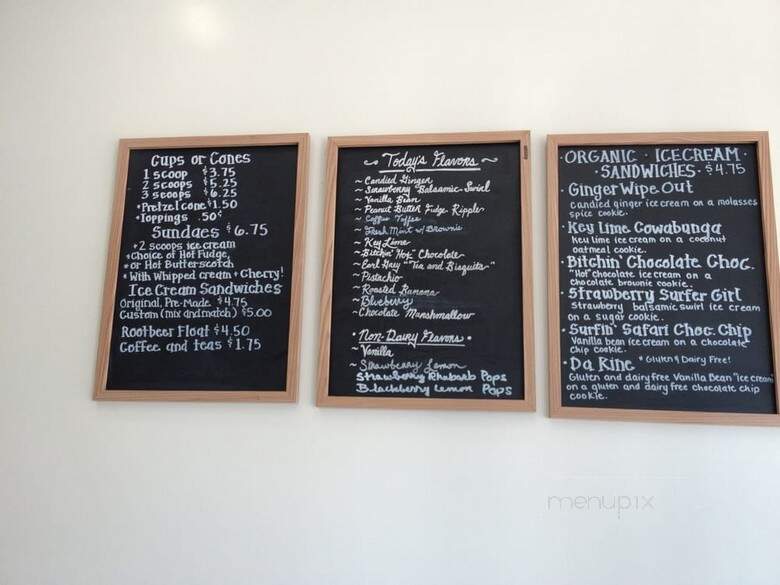 Cups or Cones
1 scoop $3.75
2 scoops $5.25
3 scoops $6.25
•Pretzel cone $1.50
•Toppings .50¢
Sundaes $6.75
•2 scoops ice cream
•Choice of Hot Fudge,
•or Hot Butterscotch
•With Whipped cream + Cherry!
Ice Cream Sandwiches
Original, Pre-Made $4.75
Custom (mix and match) $5.00
Rootbeer Float $4.50
Coffee and teas $1.75
~ Today's Flavors ~
~ Candied Ginger
~ Strawberry Balsamic Swirl
~ Vanilla Bean
~ Peanut Butter Fudge Ripple
~ Coffee Toffee
~ Fresh Mint w/ Brownie
~ Key Lime
~ Bitchin' "Hot" Chocolate
~ Earl Grey "Tea and Bisquits"
~ Pistachio
~ Roasted Banana
~ Blueberry
~ Chocolate Marshmallow
• Non-Dairy Flavors •
~ Vanilla
~ Strawberry Lemon
Strawberry Rhubarb Pops
Blackberry Lemon Pops
ORGANIC • ICECREAM •
• SANDWICHES • $4.75
• Ginger Wipe Out
Candied ginger ice cream on a molasses
spice cookie.
• Key Lime Cowabunga
Key lime ice cream on a coconut
oatmeal cookie.
• Bitchin' Chocolate Choc.
"Hot" chocolate ice cream on a
chocolate brownie cookie.
• Strawberry Surfer Girl
Strawberry balsamic swirl ice cream
on a sugar cookie.
• Surfin' Safari Choc. Chip
Vanilla bean ice cream on a chocolate
chip cookie.
• Da Kine *Gluten & Dairy Free!
Gluten and dairy free Vanilla Bean "ice cream"
on a gluten and dairy free chocolate chip
cookie.
menupix